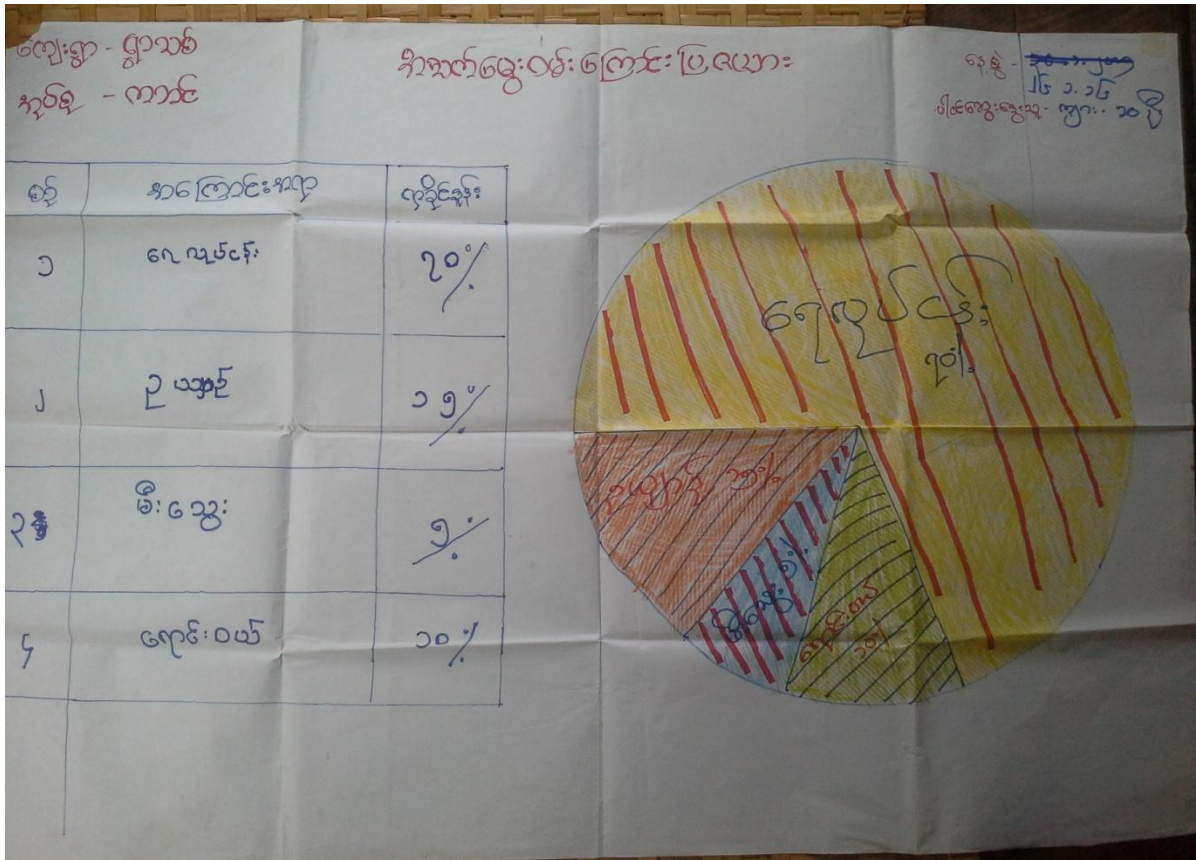 ကျေးရွာ - ရွာသစ်
အုပ်စု - ကဘင်
အသက်မွေးဝမ်းကြောင်းပြဇယား
နေ့စွဲ -
၂၆.၁.၁၆
ပါဝင်ဆွေးနွေးသူ - ကျား - ၁၀ ဦး
စဉ် အကြောင်းအရာ ရာခိုင်နှုန်း
၁ ရေလုပ်ငန်း ၇၀%
၂ ဥယျာဉ် ၁၅%
၃ မီးသွေး ၅%
၄ ရောင်းဝယ် ၁၀%
ရေလုပ်ငန်း
၇၀%
ဥယျာဉ် ၁၅%
မီးသွေး ၅%
ရောင်းဝယ်
၁၀%